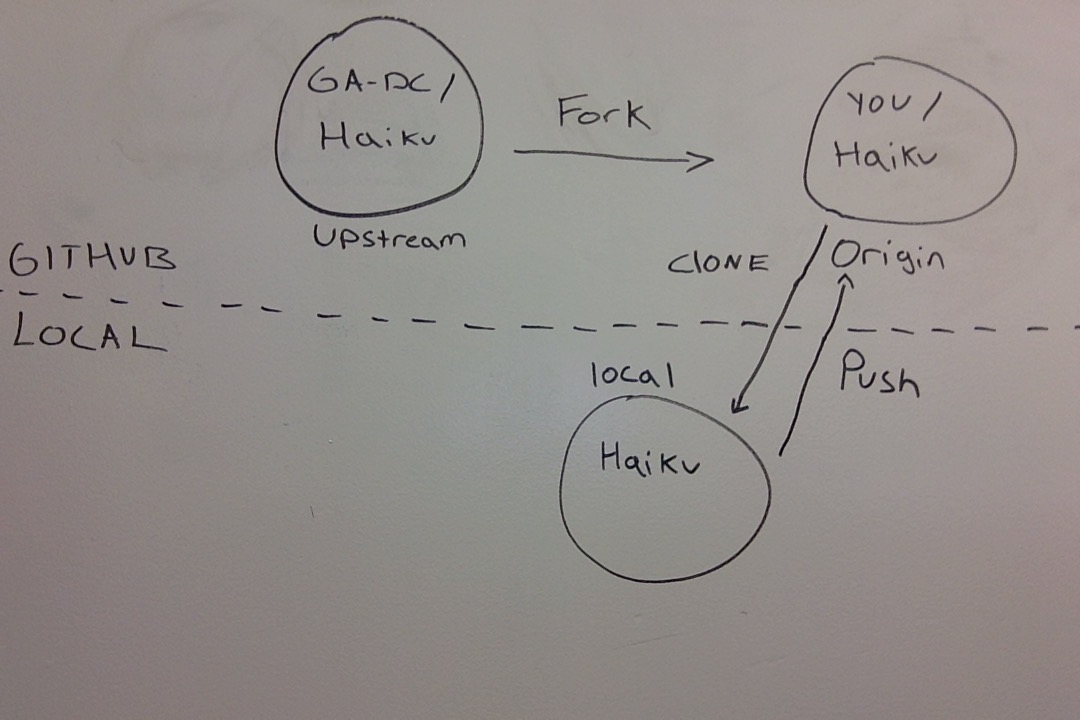 GA-DC/
Haiku
Upstream
Fork
YOU/
Haiku
Origin
GITHUB
LOCAL
CLONE
Push
local
Haiku